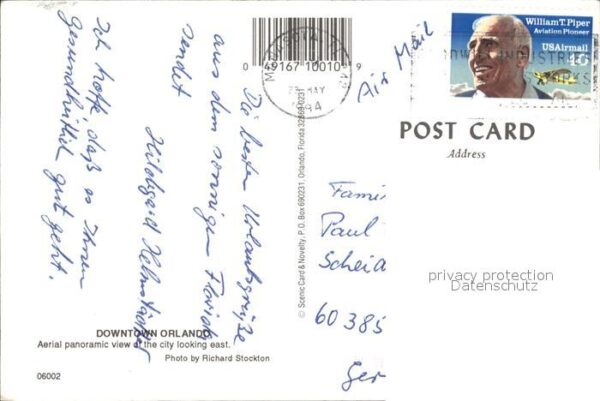 Die besten Urlaubsgrüße
aus dem sonnigen Florida
sendet
Hildegard
Ich hoffe, daß es Ihnen
gesundheitlich gut geht.
0 49167 10010 9
MAY
1994
Air Mail
William T. Piper
Aviation Pioneer
USAirmail
40
POST CARD
Address
Fami
Paul
Scheid
60385
Ger
privacy protection
Datenschutz
© Scenic Card & Novelty, P.O. Box 690231, Orlando, Florida 32869-0231
DOWNTOWN ORLANDO
Aerial panoramic view of the city looking east.
Photo by Richard Stockton
06002